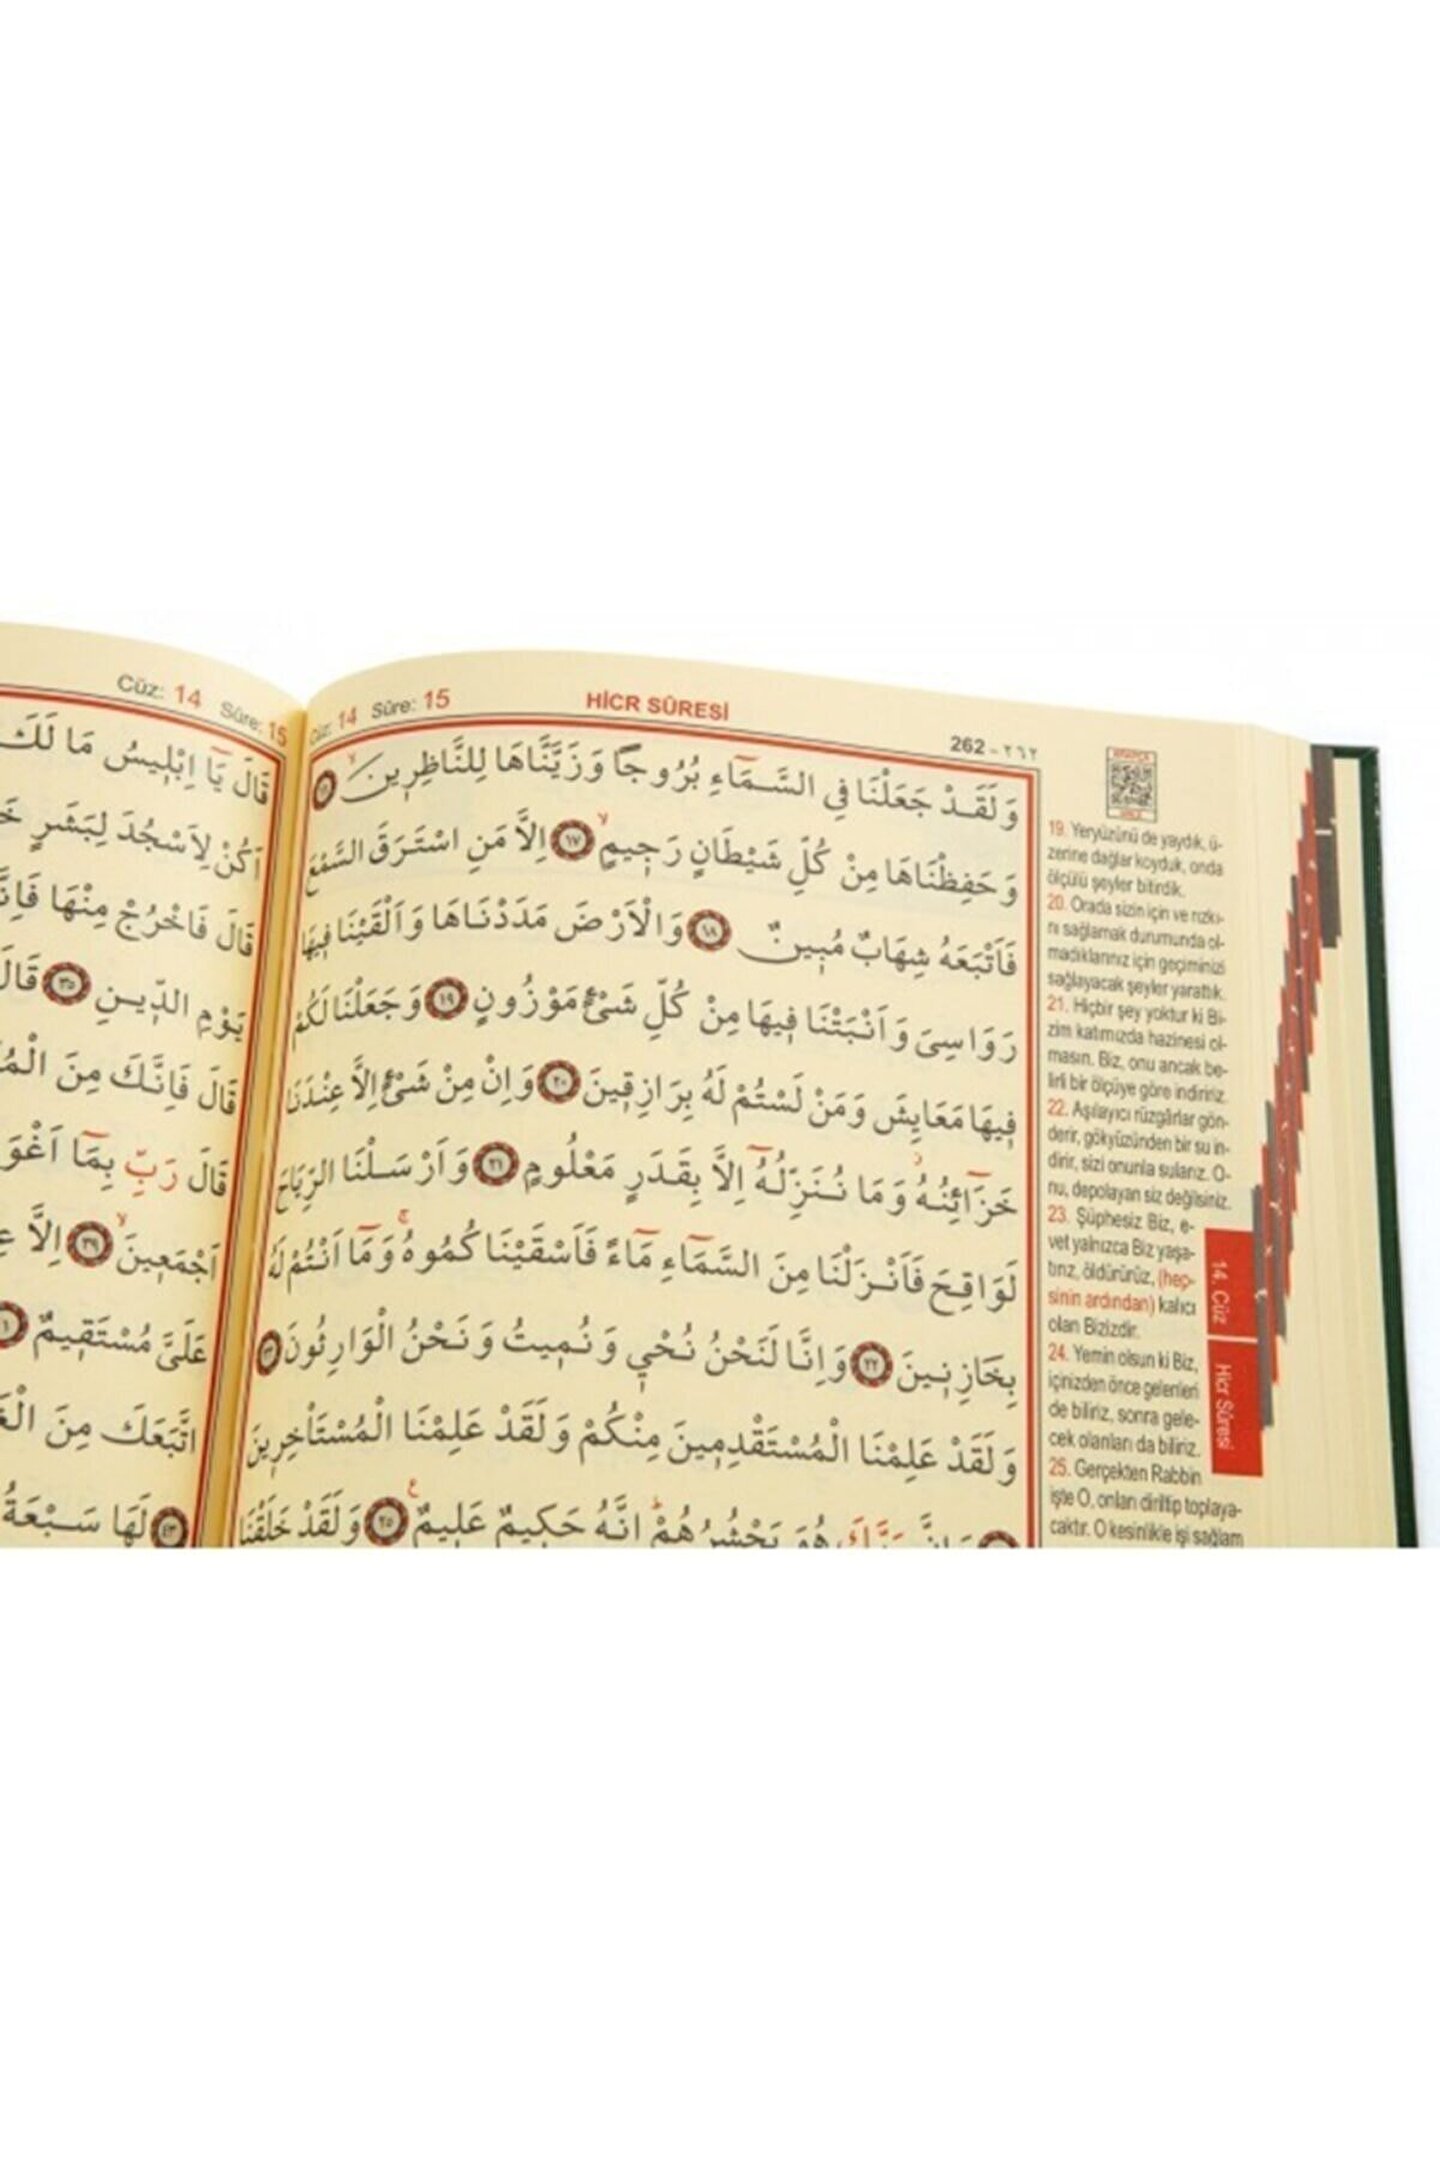 262 - ٢٦٢
HİCR SÛRESİ
Cüz: 14 Sûre: 15
وَلَقَدْ جَعَلْنَا فِى السَّمَٓاءِ بُرُوجًا وَزَيَّنَّاهَا لِلنَّاظِرِينَۙ ﴿١٦﴾
وَحَفِظْنَاهَا مِنْ كُلِّ شَيْطَانٍ رَجِيمٍۙ ﴿١٧﴾ اِلَّا مَنِ اسْتَرَقَ السَّمْعَ
فَاَتْبَعَهُ شِهَابٌ مُبِينٌ ﴿١٨﴾ وَالْاَرْضَ مَدَدْنَاهَا وَاَلْقَيْنَا فِيهَا
رَوَاسِىَ وَاَنْبَتْنَا فِيهَا مِنْ كُلِّ شَىْءٍ مَوْزُونٍ ﴿١٩﴾ وَجَعَلْنَا لَكُمْ
فِيهَا مَعَايِشَ وَمَنْ لَسْتُمْ لَهُ بِرَازِقِينَ ﴿٢٠﴾ وَاِنْ مِنْ شَىْءٍ اِلَّا عِنْدَنَا
خَزَٓائِنُهُۘ وَمَا نُنَزِّلُهُٓ اِلَّا بِقَدَرٍ مَعْلُومٍ ﴿٢١﴾ وَاَرْسَلْنَا الرِّيَاحَ
لَوَاقِحَ فَاَنْزَلْنَا مِنَ السَّمَٓاءِ مَٓاءً فَاَسْقَيْنَا كُمُوهُۚ وَمَٓا اَنْتُمْ لَهُ
بِخَازِنِينَ ﴿٢٢﴾ وَاِنَّا لَنَحْنُ نُحْيِ وَنُمِيتُ وَنَحْنُ الْوَارِثُونَ ﴿٢٣﴾
وَلَقَدْ عَلِمْنَا الْمُسْتَقْدِمِينَ مِنْكُمْ وَلَقَدْ عَلِمْنَا الْمُسْتَأْخِرِينَ
وَاِنَّ رَبَّكَ هُوَ يَحْشُرُهُمْۜ اِنَّهُ حَكِيمٌ عَلِيمٌ ﴿٢٥﴾ وَلَقَدْ خَلَقْنَا
19. Yeryüzünü de yaydık, ü-
zerine dağlar koyduk, onda
ölçülü şeyler bitirdik.
20. Orada sizin için ve rızkı-
nı sağlamak durumunda ol-
madıklarınız için geçiminizi
sağlayacak şeyler yarattık.
21. Hiçbir şey yoktur ki Bi-
zim katımızda hazinesi ol-
masın. Biz, onu ancak be-
lirli bir ölçüye göre indiririz.
22. Aşılayıcı rüzgârlar gön-
derir, gökyüzünden bir su in-
dirir, sizi onunla sularız. O-
nu, depolayan siz değilsiniz.
23. Şüphesiz Biz, e-
vet yalnızca Biz yaşa-
tırız, öldürürüz, (hep-
sinin ardından) kalıcı
olan Bizizdir.
24. Yemin olsun ki Biz,
içinizden önce gelenleri
de biliriz, sonra gele-
cek olanları da biliriz.
25. Gerçekten Rabbin
işte O, onları diriltip toplaya-
caktır. O kesinlikle işi sağlam
14. Cüz
Hicr Sûresi
Cüz: 14 Sûre: 15
قَالَ يَٓا اِبْلِيسُ مَا لَكَ
اَكُنْ لِاَسْجُدَ لِبَشَرٍ
قَالَ فَاخْرُجْ مِنْهَا
يَوْمِ الدِّينِ ﴿٣٥﴾ قَالَ
قَالَ فَاِنَّكَ مِنَ
قَالَ رَبِّ بِمَٓا
اَجْمَعِينَۙ ﴿٣٩﴾ اِلَّا
عَلَىَّ مُسْتَقِيمٌ
اتَّبَعَكَ مِنَ
﴿٤٣﴾ لَهَا سَبْعَةُ